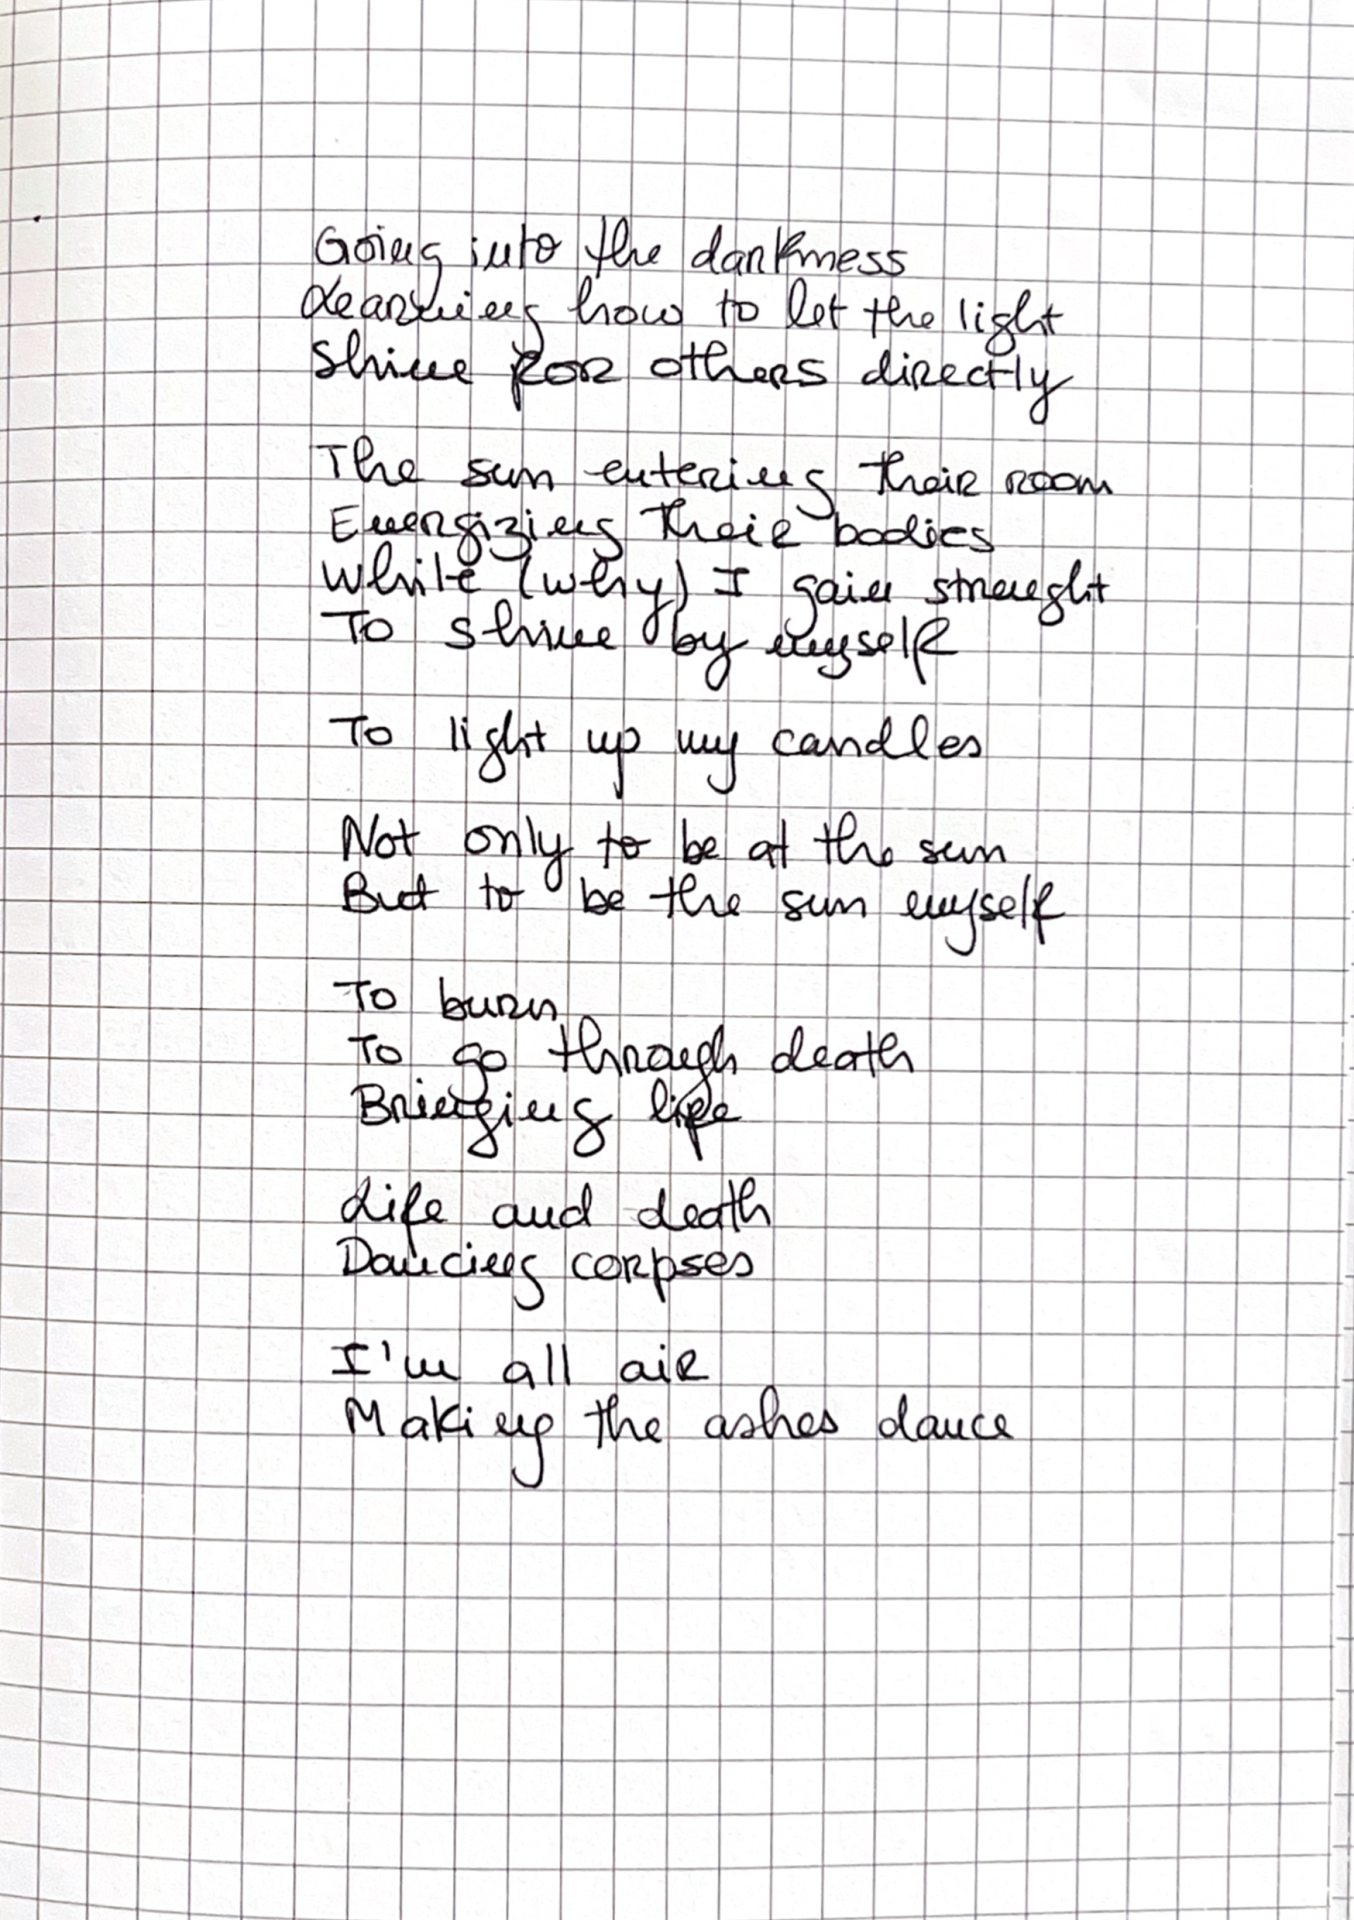 Going into the darkness
Learning how to let the light
Shine for others directly
The sun entering their room
Energizing their bodies
While (why) I gain strenght
To shine by myself
To light up my candles
Not only to be at the sun
But to be the sun myself
To burn
To go through death
Bringing life
Life and death
Dancing corpses
I'm all air
Making the ashes dance